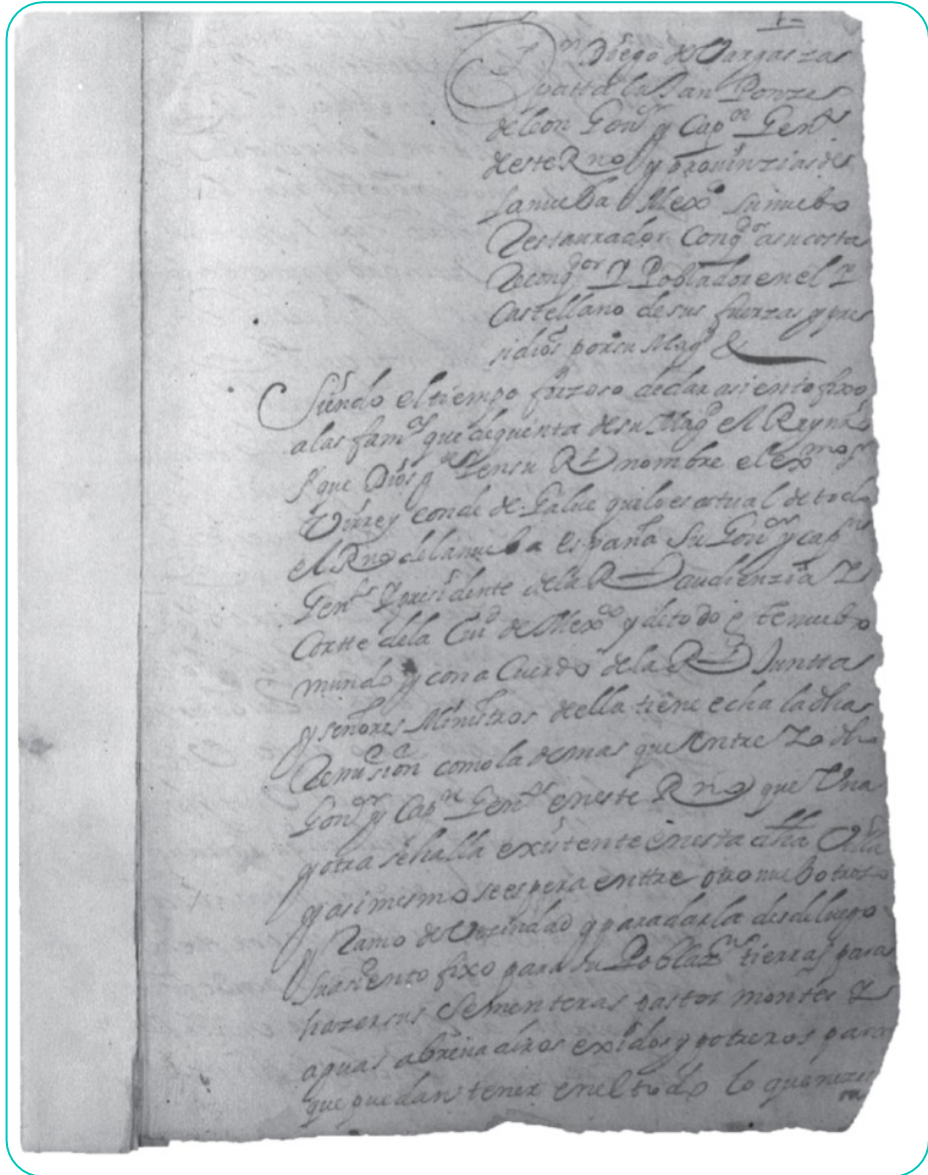 Dn Diego de Vargas Zap
patta luJan Ponze
de leon Gour y Capn Genl
deste Rno y provinzias de
la nueba Mexco su nuebo
Restaurador Conqor a su costa
Reconqor y Poblador en el y
Castellano de sus fuerzas y pre
sidios por su Magd &
Siendo el tiempo forzoso de dar asiento fixo
a las fams que de quenta de su Magd el Rey nro
Sr que Dios gde en su Rl nombre el exmo Sr
Virrey conde de Galve que lo es actual de todo
el Rno de la nueba españa su Gour y capn
Genl y presidente de la Rl audienzia y
Corte de la Ciud de Mexco y de todo este nuebo
mundo y con aCuerdo de la Rl Juntta
y señores Ministros della tiene echa la dha
Remision como la demas que entre Yo dho
Gour y Capn Genl en este Rno que Una
y otra se halla existente en esta dha Villa
y asi mesmo se espera entre otro nuebo trozo
y Ramo de Vezindad y para darla desde luego
su asiento fixo para su Poblazn tierras para
hazer sus sementeras pastos montes y
aguas abrevaderos exidos y potreros para
que puedan tener en el todo lo que neze